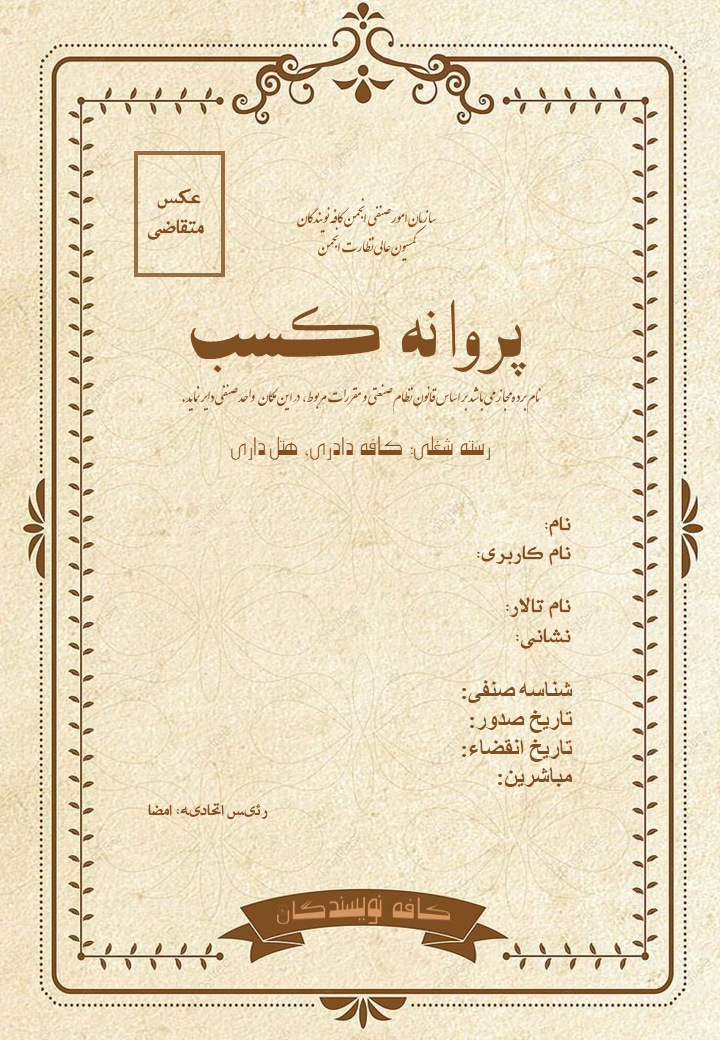 عکس
متقاضی
سازمان امور صنفی انجمن کافه نویندگان
کمسیون عالی نظارت انجمن
پروانه کسب
نام برده مجاز می باشد بر اساس قانون نظام صنعتی و مقررات مربوط، در این مکان واحد صنفی دایر نماید.
رسته شغلی: کافه دادری، هتل داری
نام:
نام کاربری:
نام تالار:
نشانی:
شناسه صنفی:
تاریخ صدور:
تاریخ انقضاء:
مباشرین:
رئیس اتحادیه: امضا
کافه نویسندگان